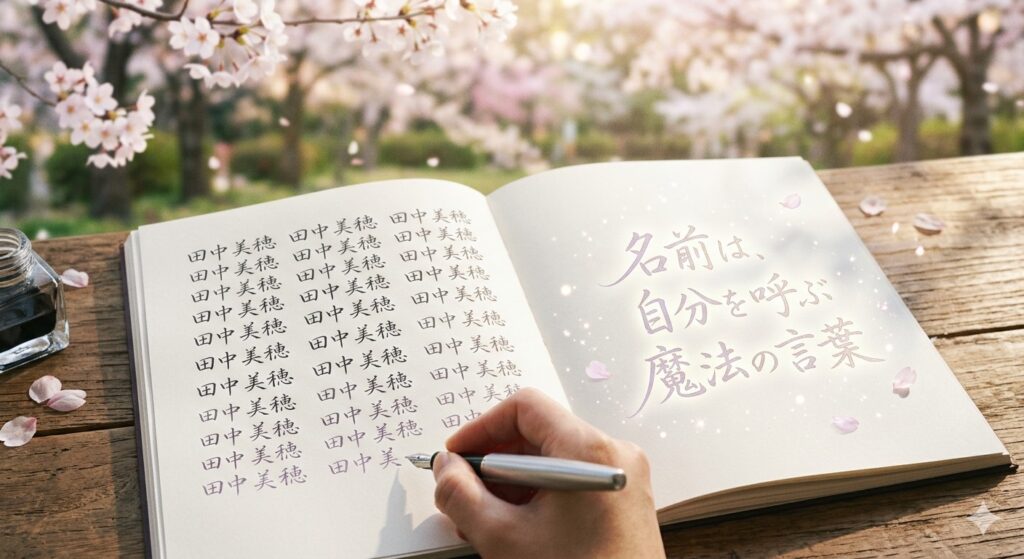 田中美穂 田中美穂 田中美穂
田中美穂 田中美穂 田中美穂
田中美穂 田中美穂 田中美穂
田中美穂 田中美穂 田中美穂
田中美穂 田中美穂 田中美穂
田中美穂 田中美穂 田中美穂
田中美穂 田中美穂 田中美穂
田中美穂 田中美穂 田中美穂
田中美穂 田中美穂 田中美穂
田中美穂 田中美穂 田中
田中美穂 田中美
名前は、
自分を呼ぶ
魔法の言葉